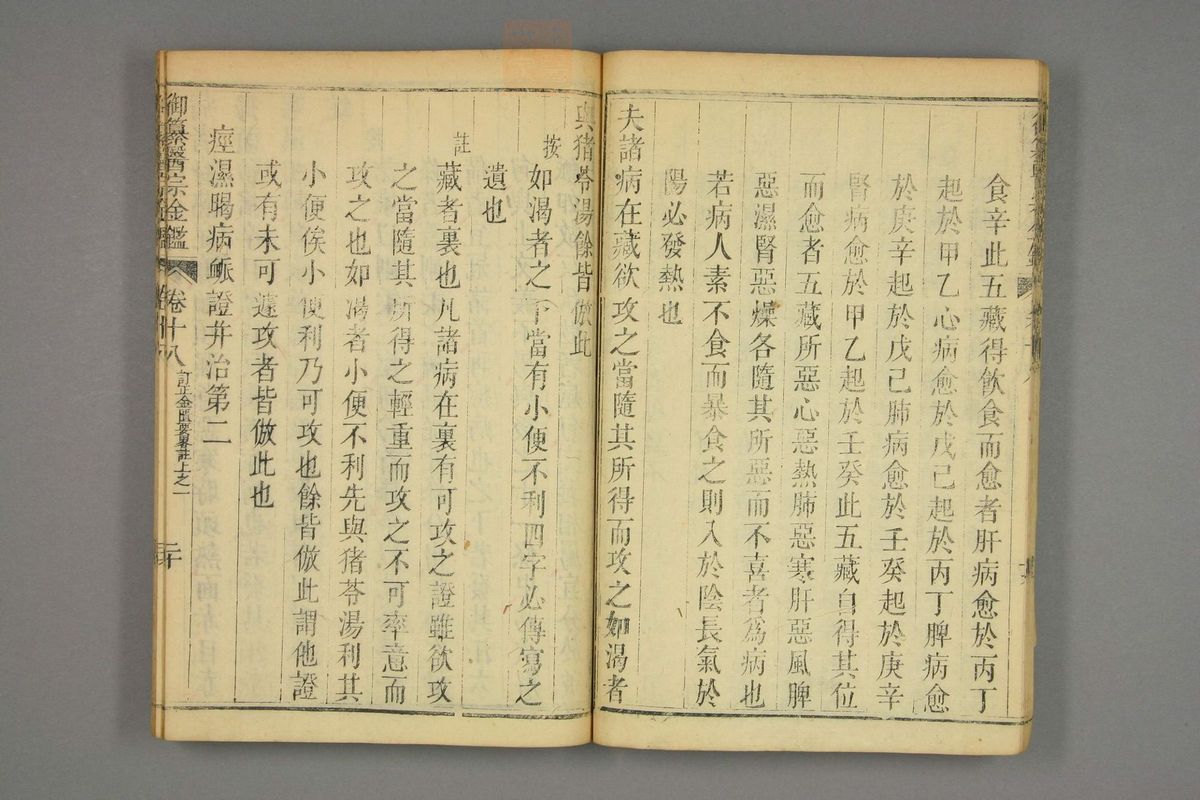 食辛此五藏得飲食而愈者肝病愈於丙丁
起於甲乙心病愈於戊己起於丙丁脾病愈
於庚辛起於戊己肺病愈於壬癸起於庚辛
腎病愈於甲乙起於壬癸此五藏自得其位
而愈者五藏所惡心惡熱肺惡寒肝惡風脾
惡濕腎惡燥各隨其所惡而不喜者爲病也
若病人素不食而暴食之則入於陰長氣於
陽必發熱也
夫諸病在藏欲攻之當隨其所得而攻之如渴者
與猪苓湯餘皆倣此
按 如渴者之下當有小便不利四字必傳寫之
遺也
註 藏者裏也凡諸病在裏有可攻之證雖欲攻
之當隨其所得之輕重而攻之不可率意而
攻之也如渴者小便不利先與猪苓湯利其
小便俟小便利乃可攻也餘皆倣此謂他證
或有未可遽攻者皆倣此也
痙濕暍病脈證并治第二
御纂醫宗金鑑 卷十八 訂正金匱要略註上之一 二十